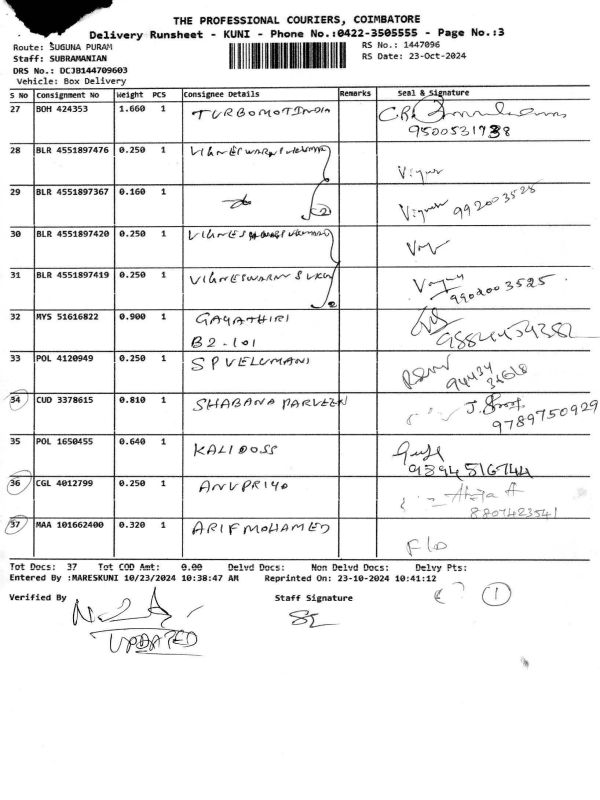 THE PROFESSIONAL COURIERS, COIMBATORE
Delivery Runsheet - KUNI - Phone No.:0422-3505555 - Page No.:3
Route: SUGUNA PURAM
RS No.: 1447096
Staff: SUBRAMANIAN
RS Date: 23-Oct-2024
DRS No.: DCJB144709603
Vehicle: Box Delivery
S No Consignment No Weight PCS Consignee Details Remarks Seal & Signature
27 BOH 424353 1.660 1 TURBOMOT INDIA
9500531738
28 BLR 4551897476 0.250 1
29 BLR 4551897367 0.160 1 992003525
30 BLR 4551897420 0.250 1
31 BLR 4551897419 0.250 1 VIGNESWARN
9902003525
32 MYS 51616822 0.900 1 GAYATHIRI
B2-101
33 POL 4120949 0.250 1 SPVELUMANI
94434
34 CUD 3378615 0.810 1 SHABANA PARVEEN
9789750929
35 POL 1650455 0.640 1 KALIDOSS
9394516744
36 CGL 4012799 0.250 1 ANUPRIYA
8807423541
37 MAA 101662400 0.320 1 ARIFMOHAMED
Tot Docs: 37 Tot COD Amt: 0.00 Delvd Docs: Non Delvd Docs: Delvy Pts:
Entered By :MARESKUNI 10/23/2024 10:38:47 AM Reprinted On: 23-10-2024 10:41:12
Verified By Staff Signature
1
UPDATED